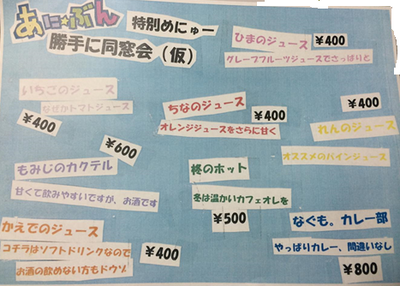 あに・ぶん 特別めにゅー
勝手に同窓会（仮）
ひまのジュース ¥400
グレープフルーツジュースでさっぱりと
いちごのジュース
なぜかトマトジュース
¥400
ちなのジュース ¥400
オレンジジュースをさらに甘く
¥400
れんのジュース
オススメのパインジュース
¥600
もみじのカクテル
甘くて飲みやすいですが、お酒です
柊のホット
冬は温かいカフェオレを
¥500
かえでのジュース
コチラはソフトドリンクなので
お酒の飲めない方もドウゾ
¥400
なぐも。カレー部
やっぱりカレー、間違いなし
¥800